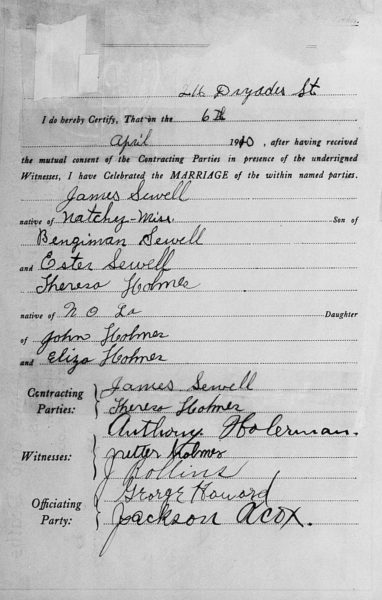 Dryades St
I do hereby Certify, That on the 6th
April 1910, after having received
the mutual consent of the Contracting Parties in presence of the undersigned
Witnesses, I have Celebrated the MARRIAGE of the within named parties.
James Sewell
native of Natchez-Miss. Son of
Bengiman Sewell
and Ester Sewell
Theresa Holmes
native of N O La Daughter
of John Holmes
and Eliza Holmes
Contracting James Sewell
Parties: Theresa Holmes
Anthony Holerman.
Witnesses: Holmes
J Rollins
Officiating George Howard
Party: Jackson Acox.